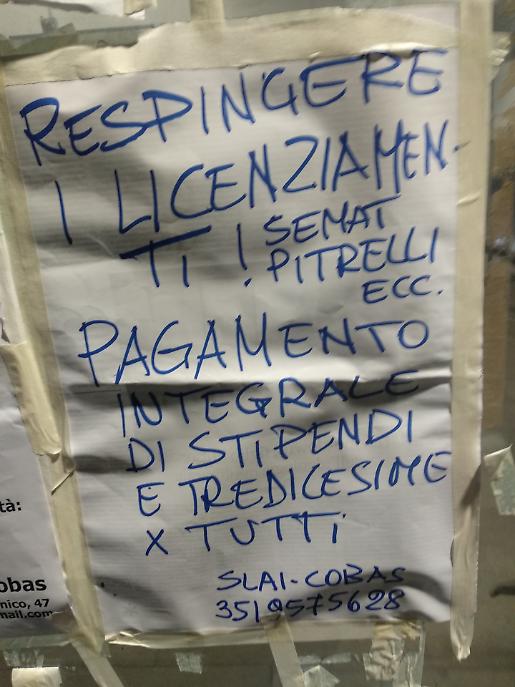 RESPINGERE
I LICENZIAMEN-
TI! SEMAT
PITRELLI
ECC.
PAGAMENTO
INTEGRALE
DI STIPENDI
E TREDICESIME
X TUTTI
SLAI-COBAS
3519575628
tà:
obas
nico, 47
mail.com